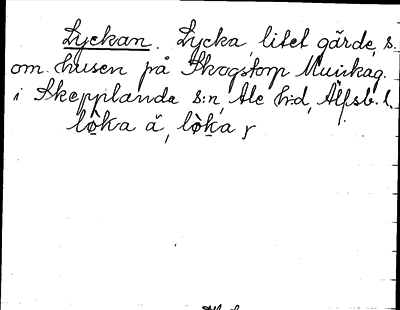 Lyckan. Lycka, litet gärde, s.
om husen på Skogstorp
i Skepplanda s:n, Ale h:d, Älfsb. l.
lo̱ka ä, lo̱ka r